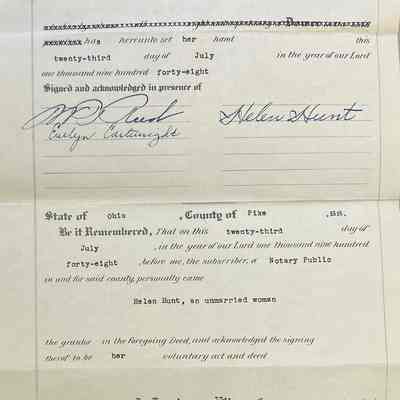 Dower
has hereunto set her hand this
twenty-third day of July in the year of our Lord
one thousand nine hundred forty-eight
Signed and acknowledged in presence of
Helen Hunt
Evelyn Cartwright
State of Ohio , County of Pike , ss.
Be it Remembered, That on this twenty-third day of
July , in the year of our Lord one thousand nine hundred
forty-eight , before me, the subscriber, a Notary Public
in and for said county, personally came
Helen Hunt, an unmarried woman
the grantor in the foregoing Deed, and acknowledged the signing
thereof to be her voluntary act and deed